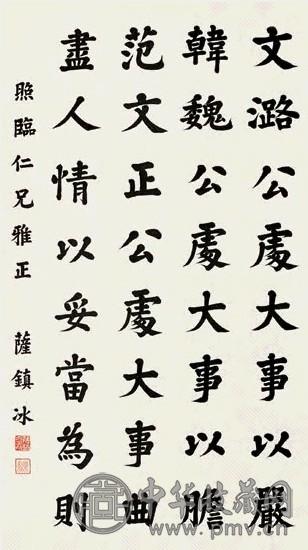 文潞公處大事以嚴
韓魏公處大事以膽
范文正公處大事曲
盡人情以妥當為則
照臨仁兄雅正 薩鎮冰
中华收藏网
www.pmv.cn